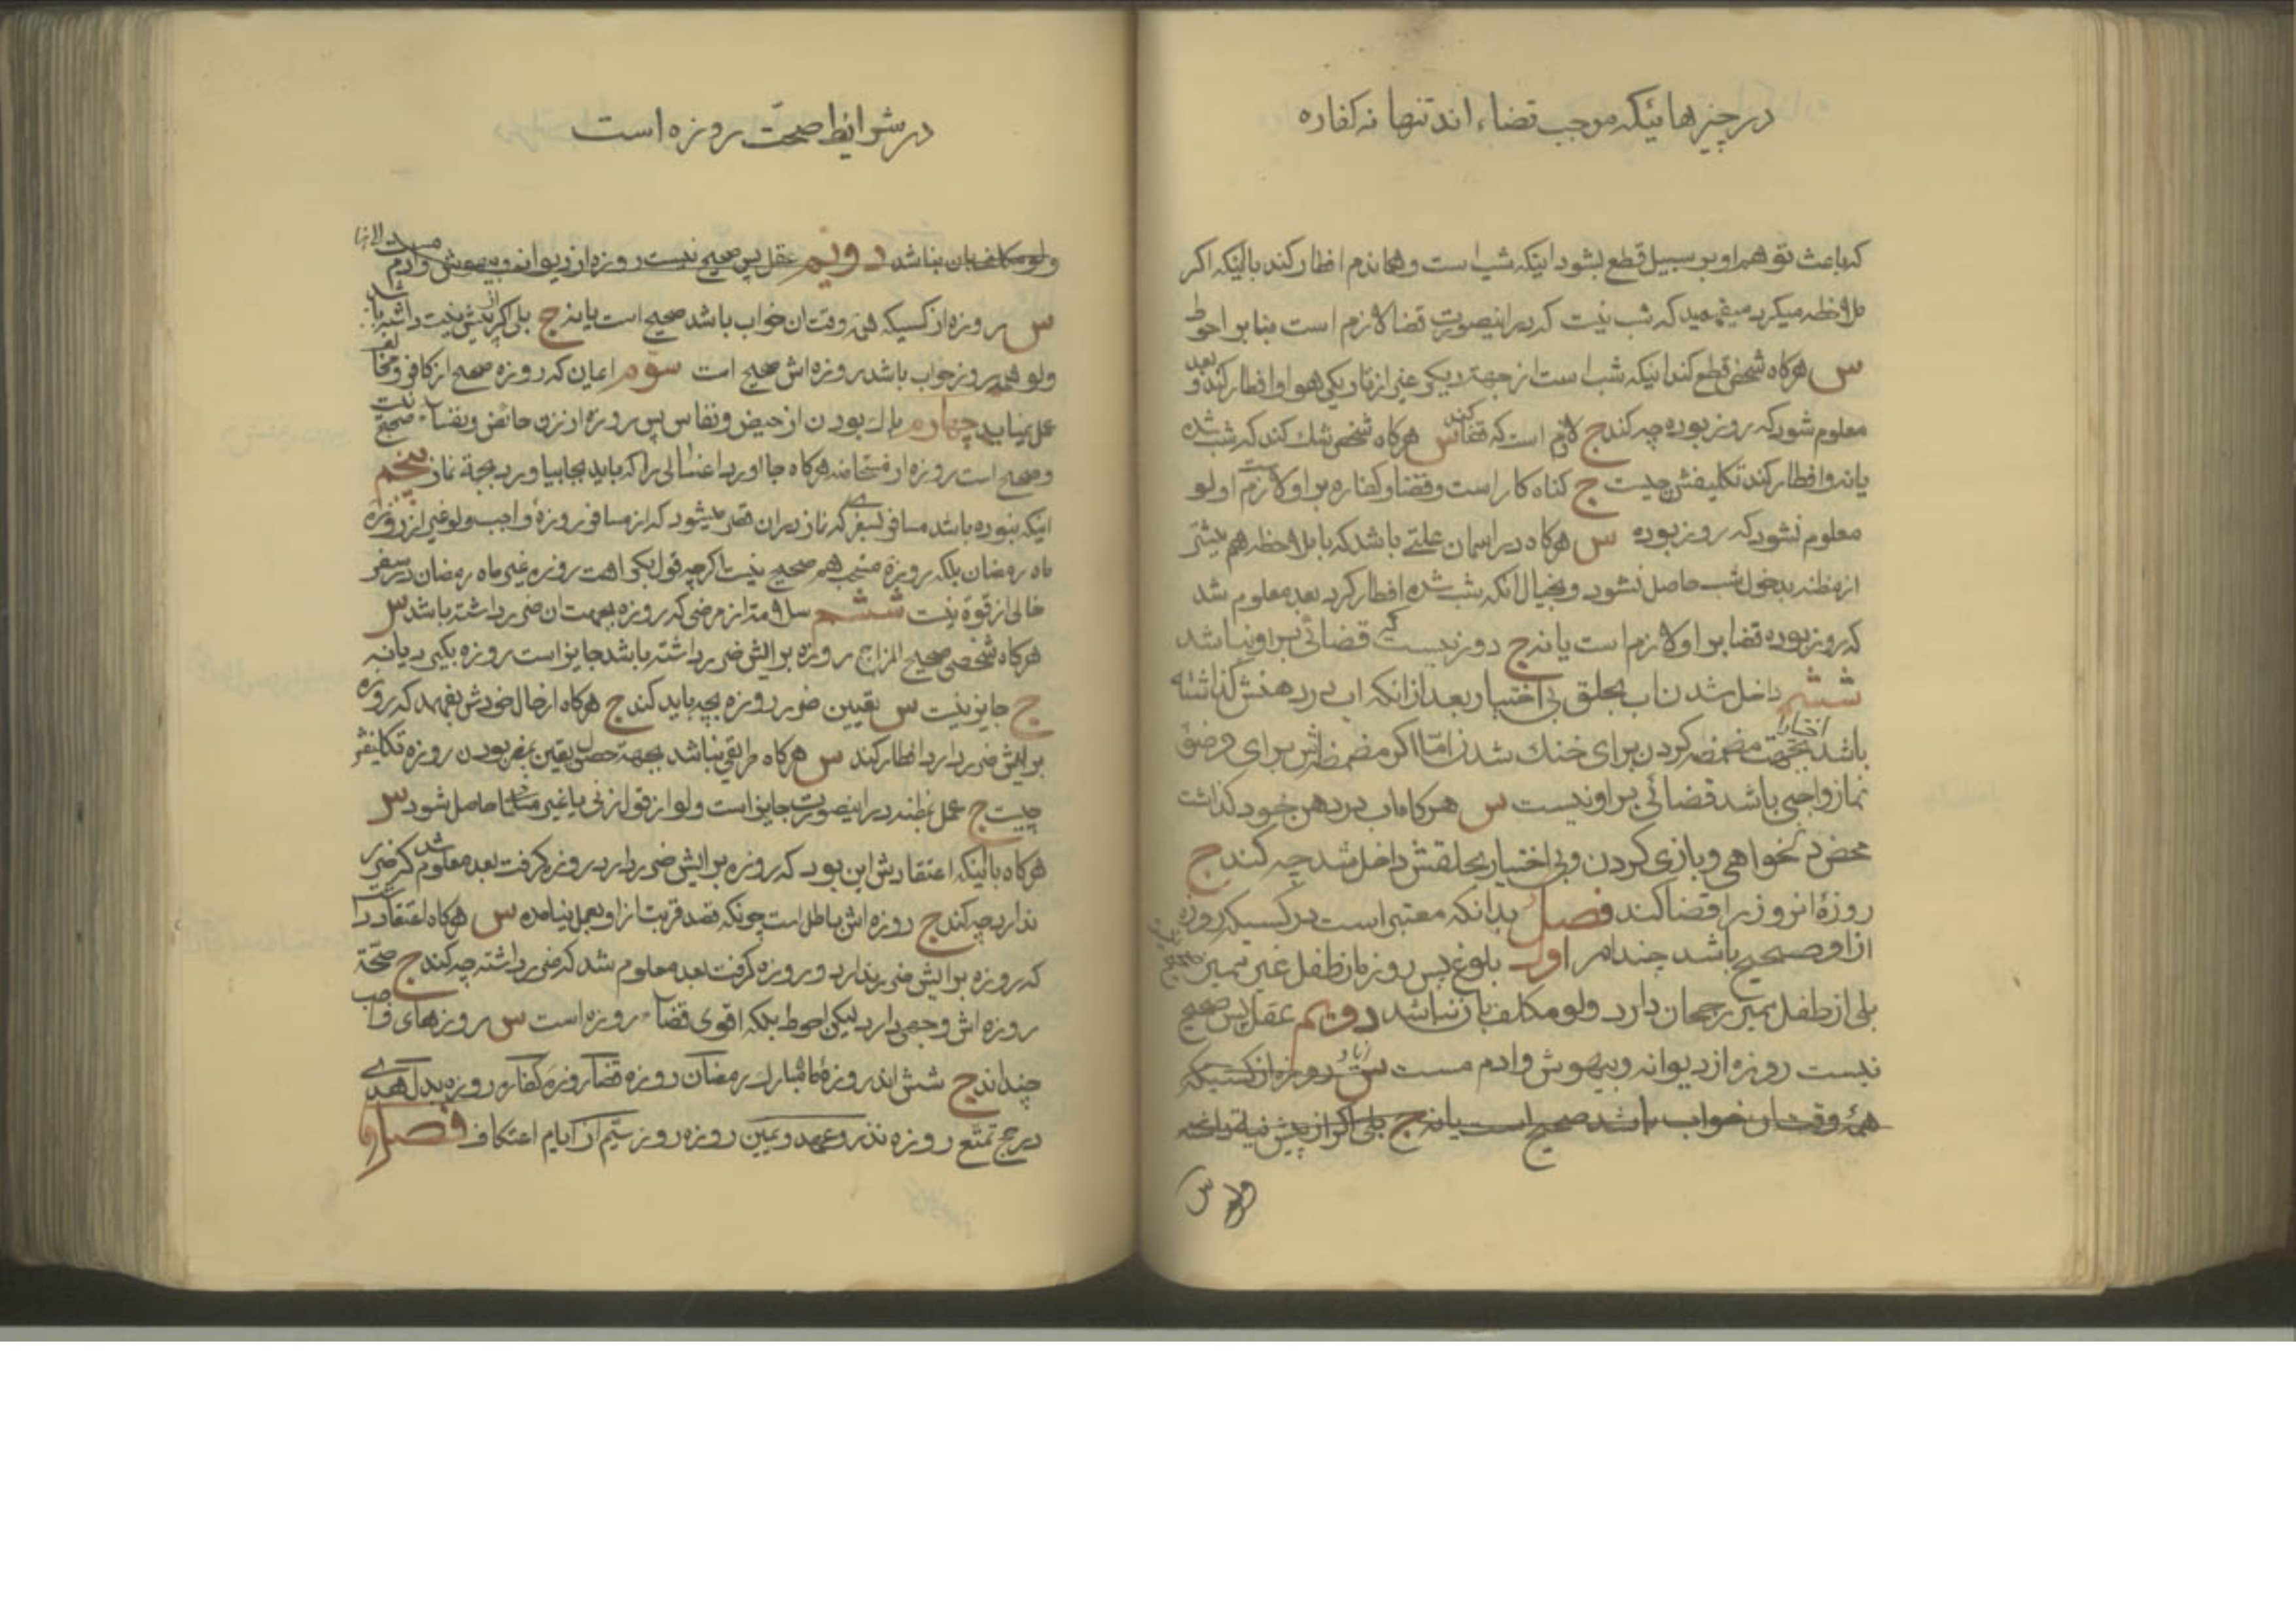 در چیزهائیکه موجب قضاء اند تنها نه کفاره
که باعث توهم او بر سبیل قطع بشود اینکه شب است و هماندم افطار کند با اینکه اکر
ملاحظه میکرد میفهمید که شب نیست که در اینصورت قضا لازم است بنا بر احوط
س هرکاه شخص قطع کند اینکه شب است از جهة دیکر غیر از تاریکی هوا و افطار کند و بعد
معلوم شود که روز بوده چه کند ج لازم است که قضا کند س هرکاه شخص شک کند که شب شده
یا نه و افطار کند تکلیفش چیست ج کناه کار است و قضا و کفاره بر او لازم است و لو
معلوم نشود که روز بوده س هرکاه در اسمان علتی باشد که با ملاحظه هم بیشتر
از مظنه بدخول شب حاصل نشود و بخیال انکه شب شده افطار کرد بعد معلوم شد
که روز بوده قضا بر او لازم است یا نه ج دور نیست که قضائی بر او نباشد
ششم داخل شدن اب بحلق بی اختیار بعد از انکه اب در دهنش کذاشته
باشد اختیارا بجهت مضمضه کردن برای خنک شدن امّا اکر مضمضه‌اش برای وضوی
نماز واجبی باشد قضائی بر او نیست س هرکاه اب در دهن خود کذاشت
محض دلخواهی و بازی کردن و بی اختیار بحلقش داخل شد چه کند ج
روزهٔ انروز را قضا کند فصل بدانکه معتبر است در کسیکه روزه
از او صحیح باشد چند امر اول بلوغ پس روزه از طفل غیر ممیز صحیح نیست
بلی از طفل ممیز رجحان دارد و لو مکلف بان نباشد دویم عقل پس صحیح
نیست روزه از دیوانه و بیهوش و ادم مست س روزه از کسیکه
همهٔ وقت ان خواب باشد صحیح است یا نه ج بلی اکر از پیش نیة داشته
در شرایط صحّت روزه است
و لو مکلف بان نباشد دویم عقل پس صحیح نیست روزه از دیوانه و بیهوش و ادم مست
س روزه از کسیکه همهٔ وقت ان خواب باشد صحیح است یا نه ج بلی اکر از پیش نیت داشته باشد
و لو همه روز خواب باشد روزه اش صحیح است سوم ایمان که روزه صحیح از کافر و مخالف
عمل نمیاید چهارم پاک بودن از حیض و نفاس پس روزه از زن حائض و نفساء صحیح نیست
و صحیح است روزه از مستحاضه هرکاه جا اورد اغسالی را که باید بجا بیاورد بجهة نماز پنجم
اینکه نبوده باشد مسافر بسفری که نماز در ان قصر میشود که از مسافر روزهٔ واجب و لو غیر از روزه
ماه رمضان بلکه روزهٔ مستحب هم صحیح نیست اکرچه قول بکراهت روزه غیر ماه رمضان در سفر
خالی از قوة نیست ششم سلامة از مرضی که روزه بجهت ان ضرر داشته باشد س
هرکاه شخصی صحیح المزاج روزه برایش ضرر داشته باشد جایز است روزه بکیرد یا نه
ج جایز نیست س تعیین ضرر روزه بچه باید کند ج هرکاه از حال خودش بفهمد که روزه
برایش ضرر دارد افطار کند س هرکاه طریقی نباشد بجهة حصول یقین بمضر بودن روزه تکلیفش
چیست ج عمل بظنه در اینصورت جایز است و لو از قول زنی یا غیر حاصل شود س
هرکاه با اینکه اعتقادش این بود که روزه برایش ضرر دارد روزه کرفت بعد معلوم شد که ضرر
ندارد چه کند ج روزه اش باطل است چونکه قصد قربت از او بعمل نیامده س هرکاه اعتقاد داشت
که روزه برایش ضرر ندارد و روزه کرفت بعد معلوم شد که ضرر داشته چه کند ج صحّة
روزه اش وجهی دارد لیکن احوط بلکه اقوی قضاء روزه است س روزهای واجب
چنداند ج شش اند روزهٔ ماه مبارک رمضان روزه قضا روزهٔ کفاره روزه بدل هدی
در حج تمتّع روزه نذر و عهد و یمین روزه روز سیّم از ایام اعتکاف فصل